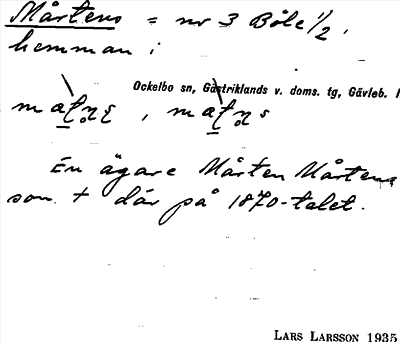 Mårtens = nr 3 Böle 1/2,
hemman i
Ockelbo sn, Gästriklands v. doms. tg, Gävleb. l
En ägare Mårten Mårtens
son † där på 1870-talet.
LARS LARSSON 1935